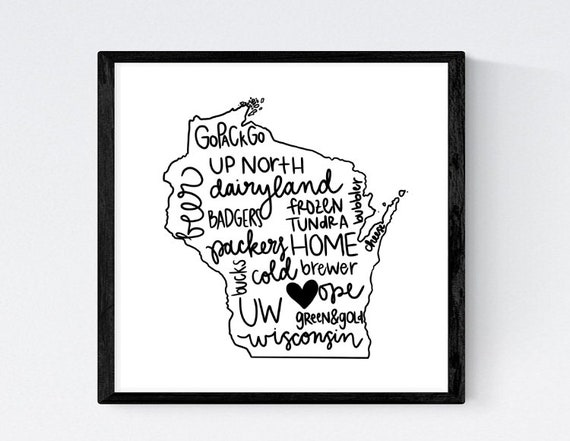 GOPACKGO
UP NORTH
beer
dairyland
BADGERS
FROZEN
TUNDRA
bubbler
packers
HOME
cheese
bucks
cold
brewer
ope
UW
GREEN&GOLD
wisconsin